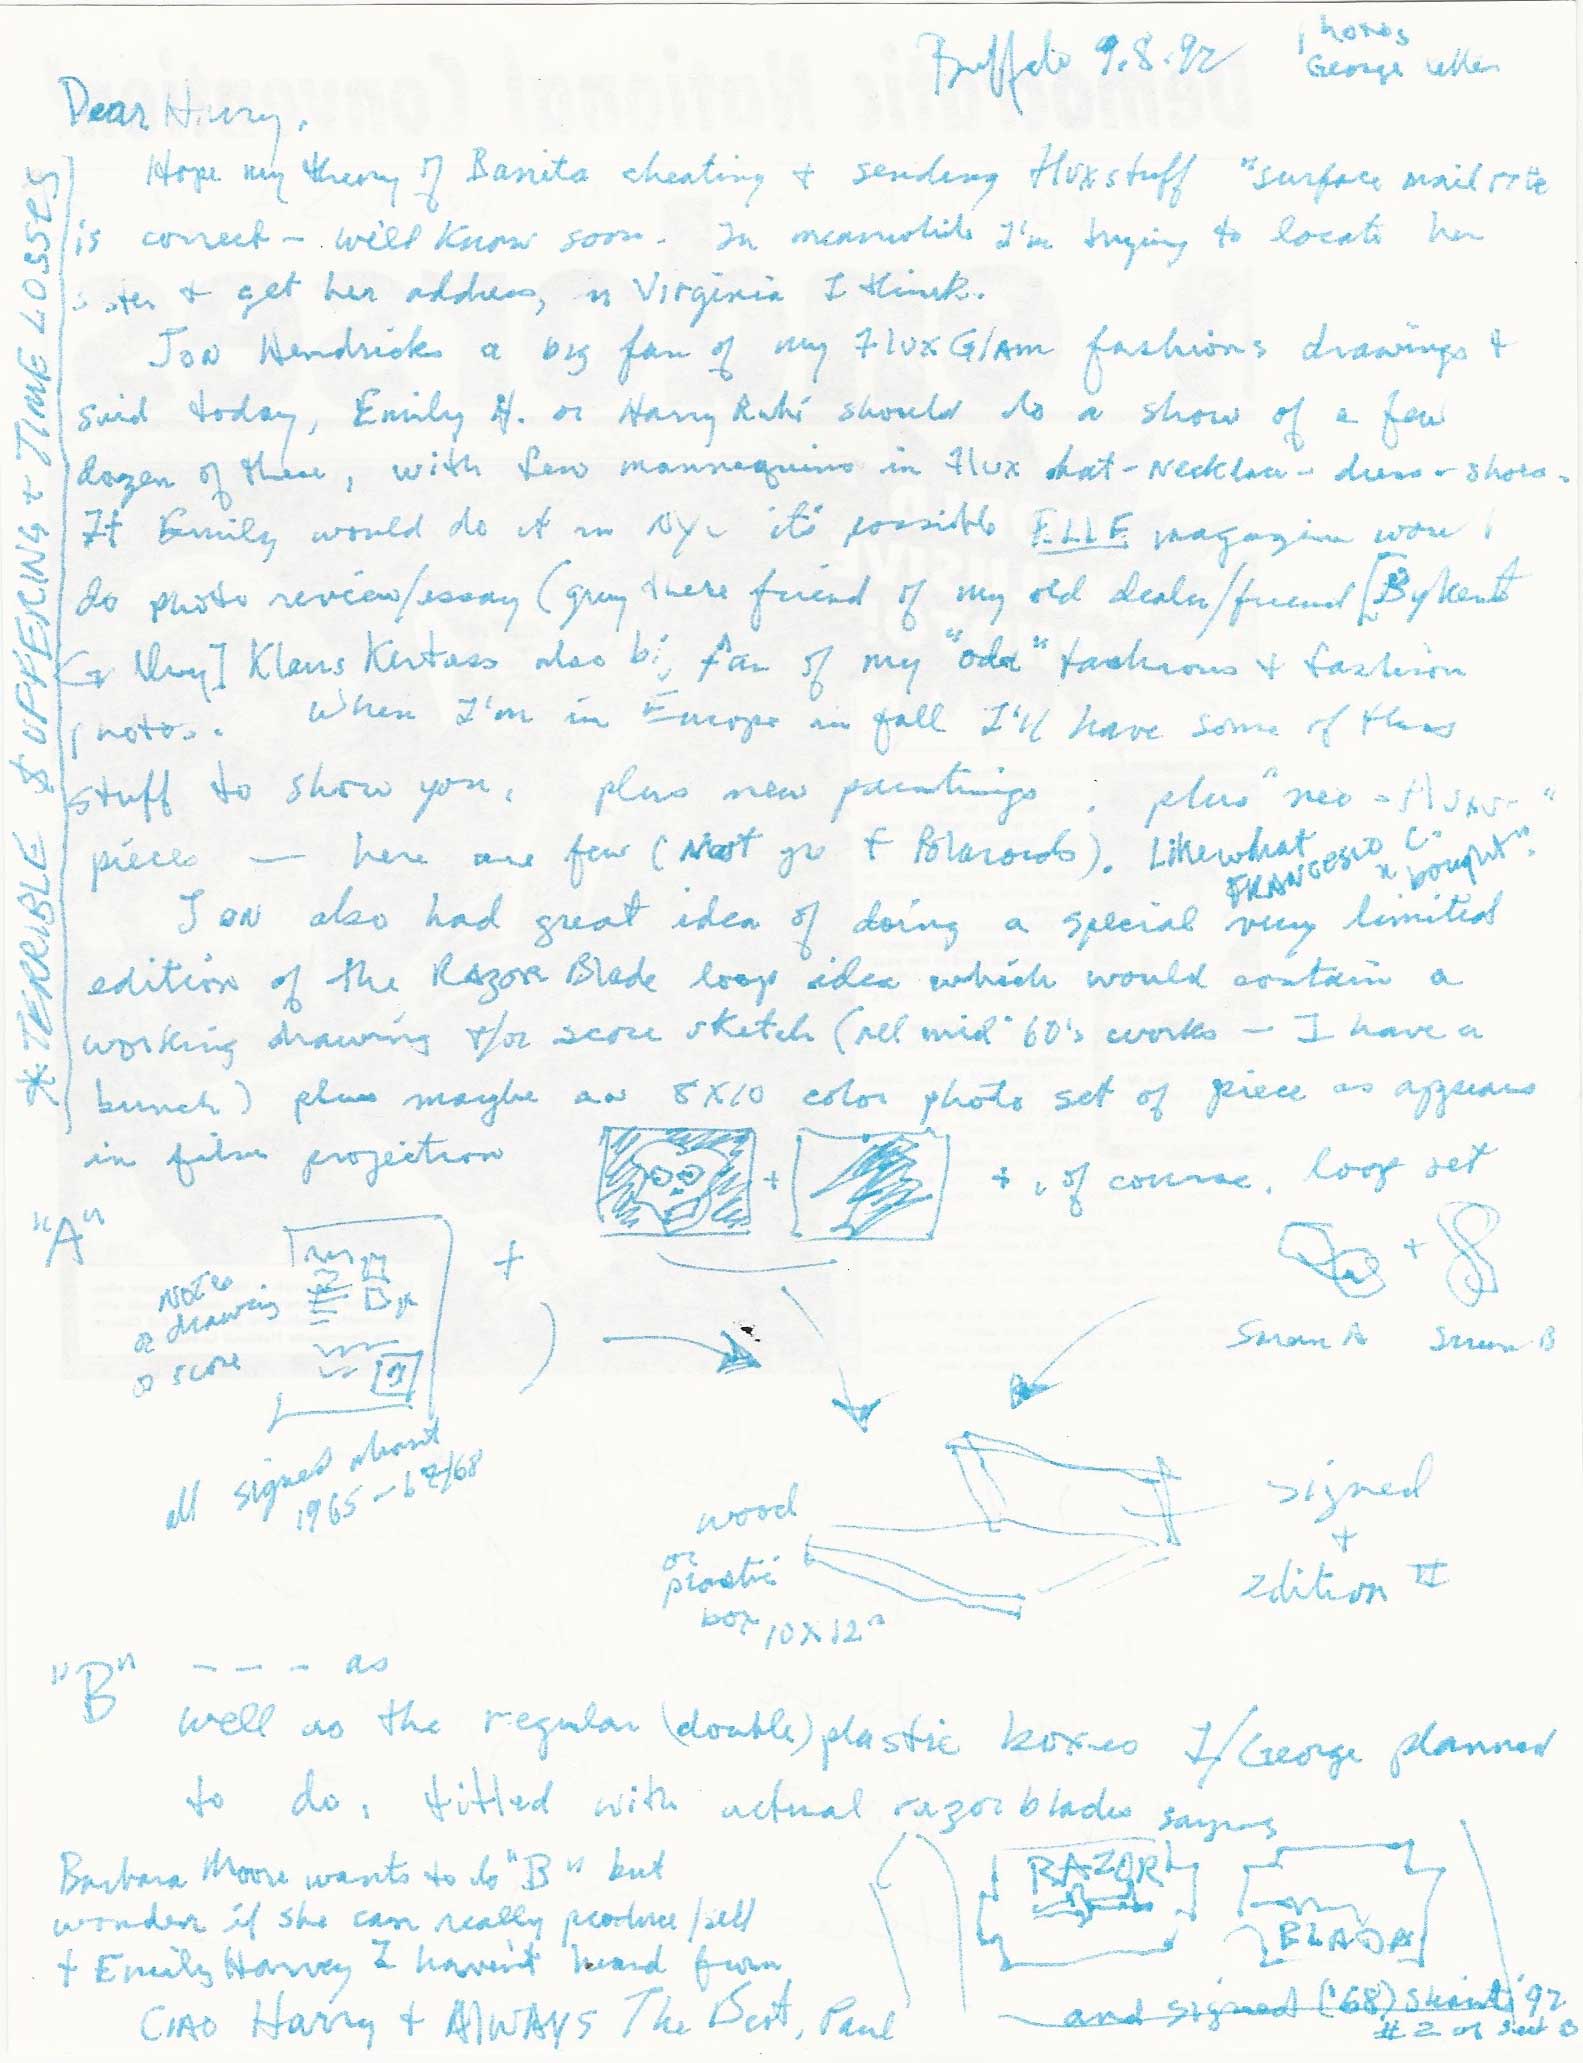 Buffalo 9.8.92
Photos
George letter
Dear Harry,
Hope my theory of Banita cheating + sending Flux stuff "surface mail rate
is correct - will know soon. In meanwhile I'm trying to locate her
sister + get her address, in Virginia I think.
Jon Hendricks a big fan of my Flux Glam fashions drawings +
said today, Emily H. or Harry Ruhé should do a show of a few
dozen of these, with few mannequins in Flux hat - necklace - dress - shoes.
If Emily would do it in NYC it's possible ELLE magazine would
do photo review/essay (guy there friend of my old dealer/friend [Bykert
Gallery] Klaus Kertess also big fan of my "odd" fashions + fashion
photos. When I'm in Europe in fall I'll have some of this
stuff to show you, plus new paintings, plus "neo-Fluxus"
pieces — here are few (Not gr8 Polaroids). Like what
FRANCESCO C. "bought".
Jon also had great idea of doing a special very limited
edition of the Razor Blade loop idea which would contain a
working drawing +/or score sketch (all mid '60's works - I have a
bunch) plus maybe an 8X10 color photo set of piece as appears
in film projection + + , of course, loop set
"A"
Notes
or drawing
or score
+
+
Screen A Screen B
all signed sharit
1965-67/68
wood
or
plastic
box 10X12"
signed
+
Edition II
"B" - - - - as
well as the regular (double) plastic boxes I/George planned
to do, titled with actual razor blades saying
RAZOR
BLADA
Barbara Moore wants to do "B" but
wonder if she can really produce/sell
+ Emily Harvey I haven't heard from
and signed ('68) Sharits '92
# 2 of Set B
CIAO Harry + AlWAYS The Best, Paul
* TERRIBLE SUFFERING + TIME LOSSES